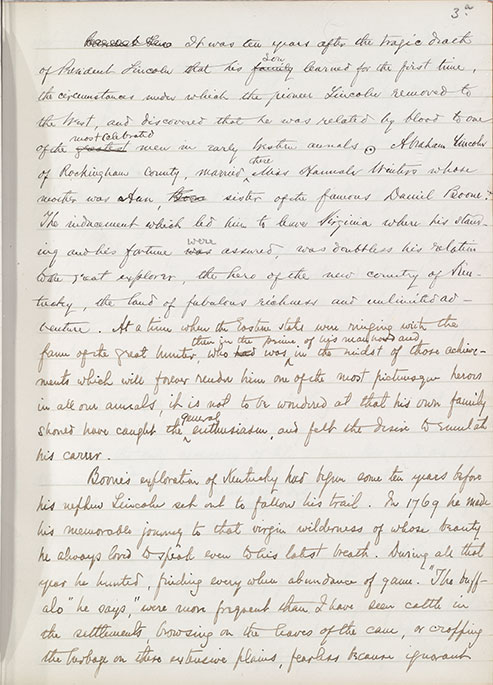 3a
It was ten years after the tragic death
of President Lincoln that his family son learned for the first time,
the circumstances under which the pioneer Lincoln removed to
the West, and discovered that he was related by blood to one
of the greatest most celebrated men in early Western annals. Abraham Lincoln
of Rockingham County, married there Miss Hannah Winters whose
mother was Ann, Boone sister of the famous Daniel Boone.
The inducement which led him to leave Virginia where his stand-
ing and his fortune was were assured, was doubtless his relation
to the great explorer, the hero of the new country of Ken-
tucky, the land of fabulous richness and unlimited ad-
venture. At a time when the Eastern States were ringing with the
fame of the great hunter, who had was then in the prime of his manhood and in the midst of those achieve-
ments which will forever render him one of the most picturesque heroes
in all our annals, it is not to be wondered at that his own family
should have caught the general enthusiasm, and felt the desire to emulate
his career.
Boone's exploration of Kentucky had begun some ten years before
his nephew Lincoln set out to follow his trail. In 1769 he made
his memorable journey to that virgin wilderness of whose beauty
he always loved to speak even to his latest breath. During all that
year he hunted, finding everywhere abundance of game. "The buff-
alo" he says, "were more frequent than I have seen cattle in
the settlements, browsing on the leaves of the cane, or cropping
the herbage on these extensive plains, fearless because ignorant